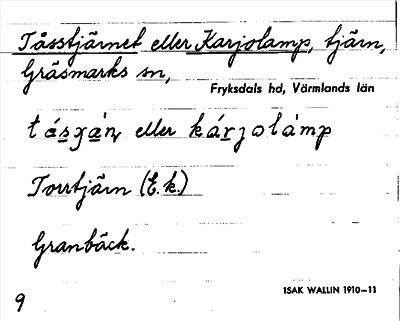 Tåsstjärnet eller Karjolamp, tjärn,
Gräsmarks sn,
Fryksdals hd, Värmlands län
eller kárjolàmp
Torrtjärn (E.k.)
Granbäck.
ISAK WALLIN 1910–11
9